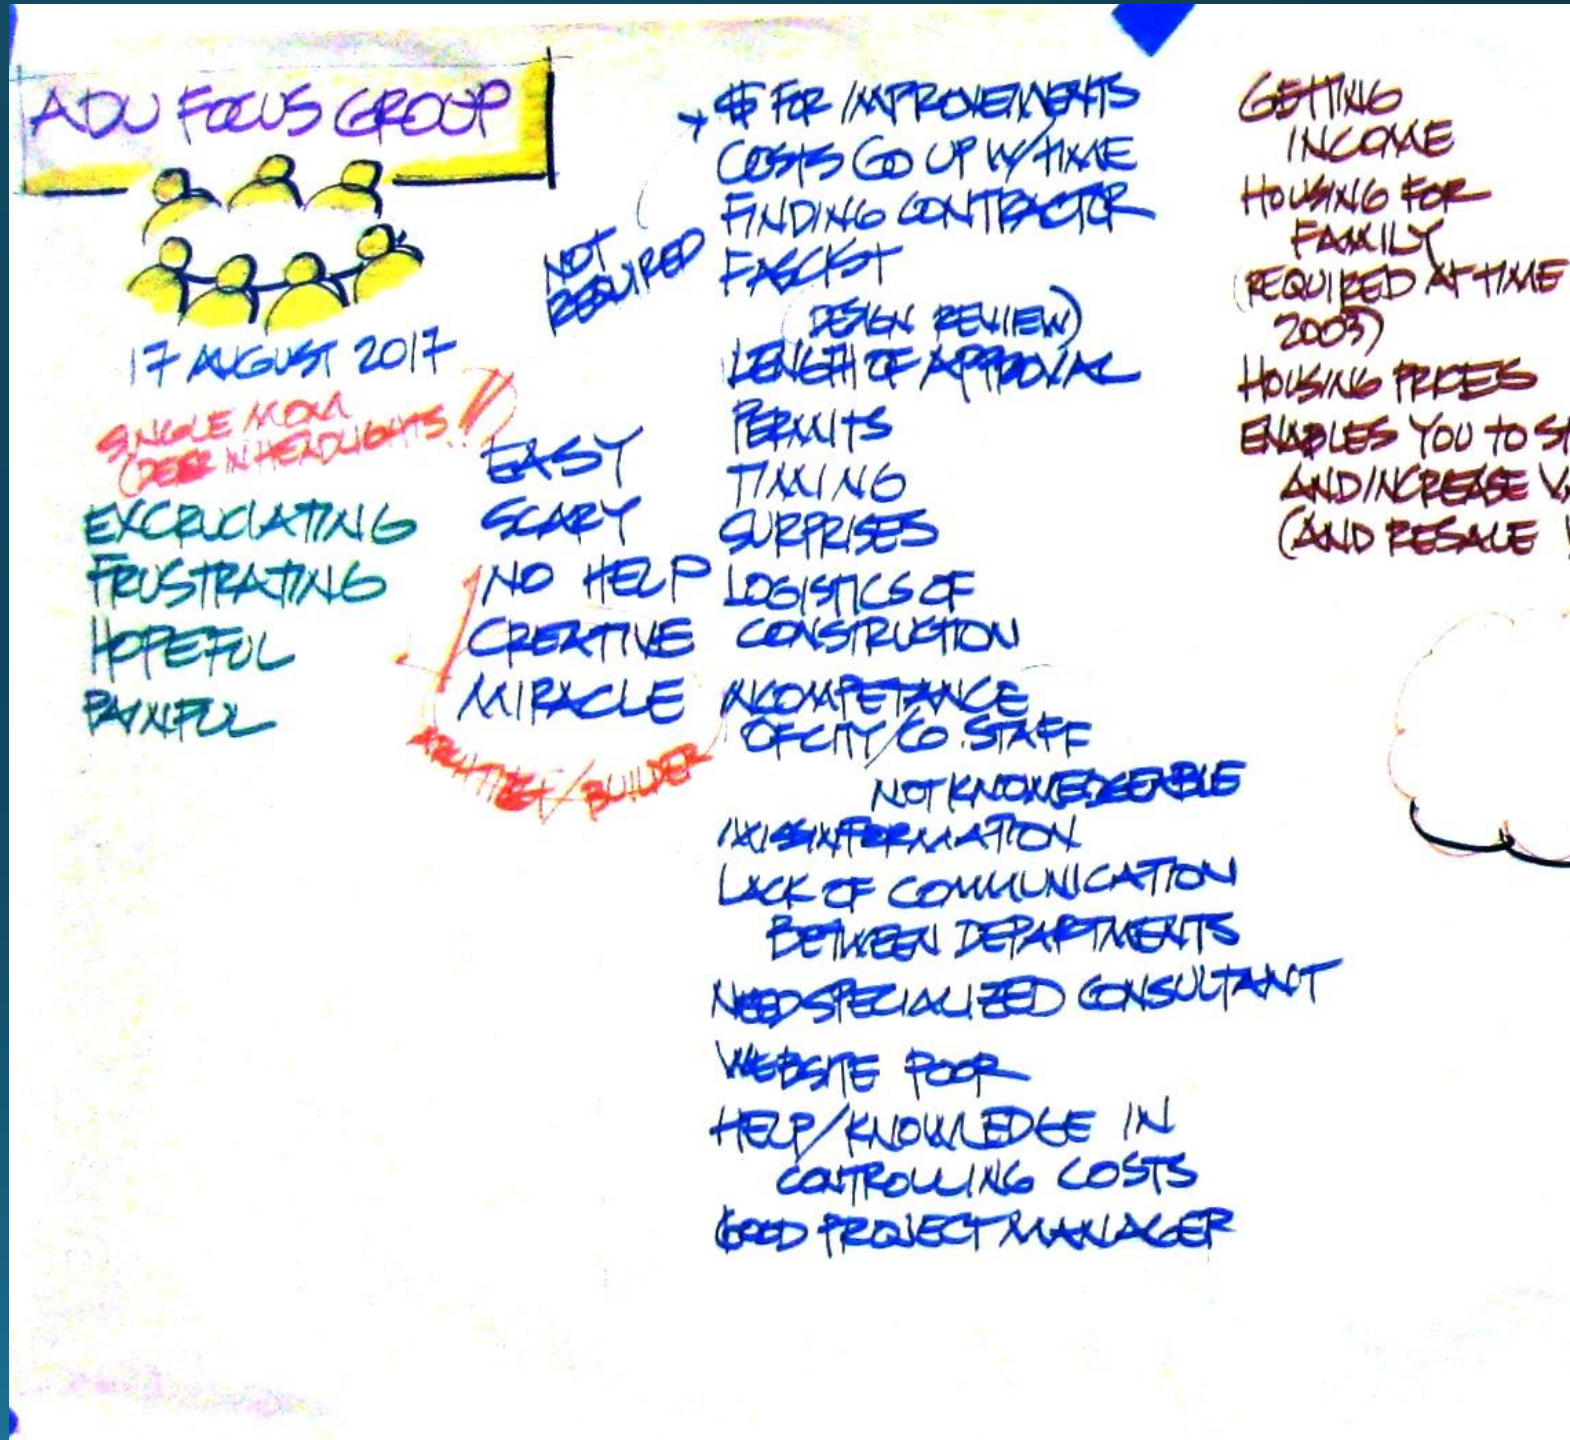 ADU FOCUS GROUP
17 AUGUST 2017
SINGLE MOM
(DEER IN HEADLIGHTS!!
EXCRUCIATING
FRUSTRATING
HOPEFUL
PAINFUL
EASY
SCARY
NO HELP
CREATIVE
MIRACLE
ARCHITECT/BUILDER
NOT
REQUIRED
$ FOR IMPROVEMENTS
COSTS GO UP W/TIME
FINDING CONTRACTOR
FASCIST
(DESIGN REVIEW)
LENGTH OF APPROVAL
PERMITS
TIMING
SURPRISES
LOGISTICS OF
CONSTRUCTION
INCOMPETANCE
OF CITY/CO. STAFF
NOT KNOWLEDGEABLE
MISSINFORMATION
LACK OF COMMUNICATION
BETWEEN DEPARTMENTS
NEED SPECIALIZED CONSULTANT
WEBSITE POOR
HELP/KNOWLEDGE IN
CONTROLLING COSTS
GOOD PROJECT MANAGER
GETTING
INCOME
HOUSING FOR
FAMILY
(REQUIRED AT TIME
2003)
HOUSING PRICES
ENABLES YOU TO
AND INCREASE
(AND RESALE